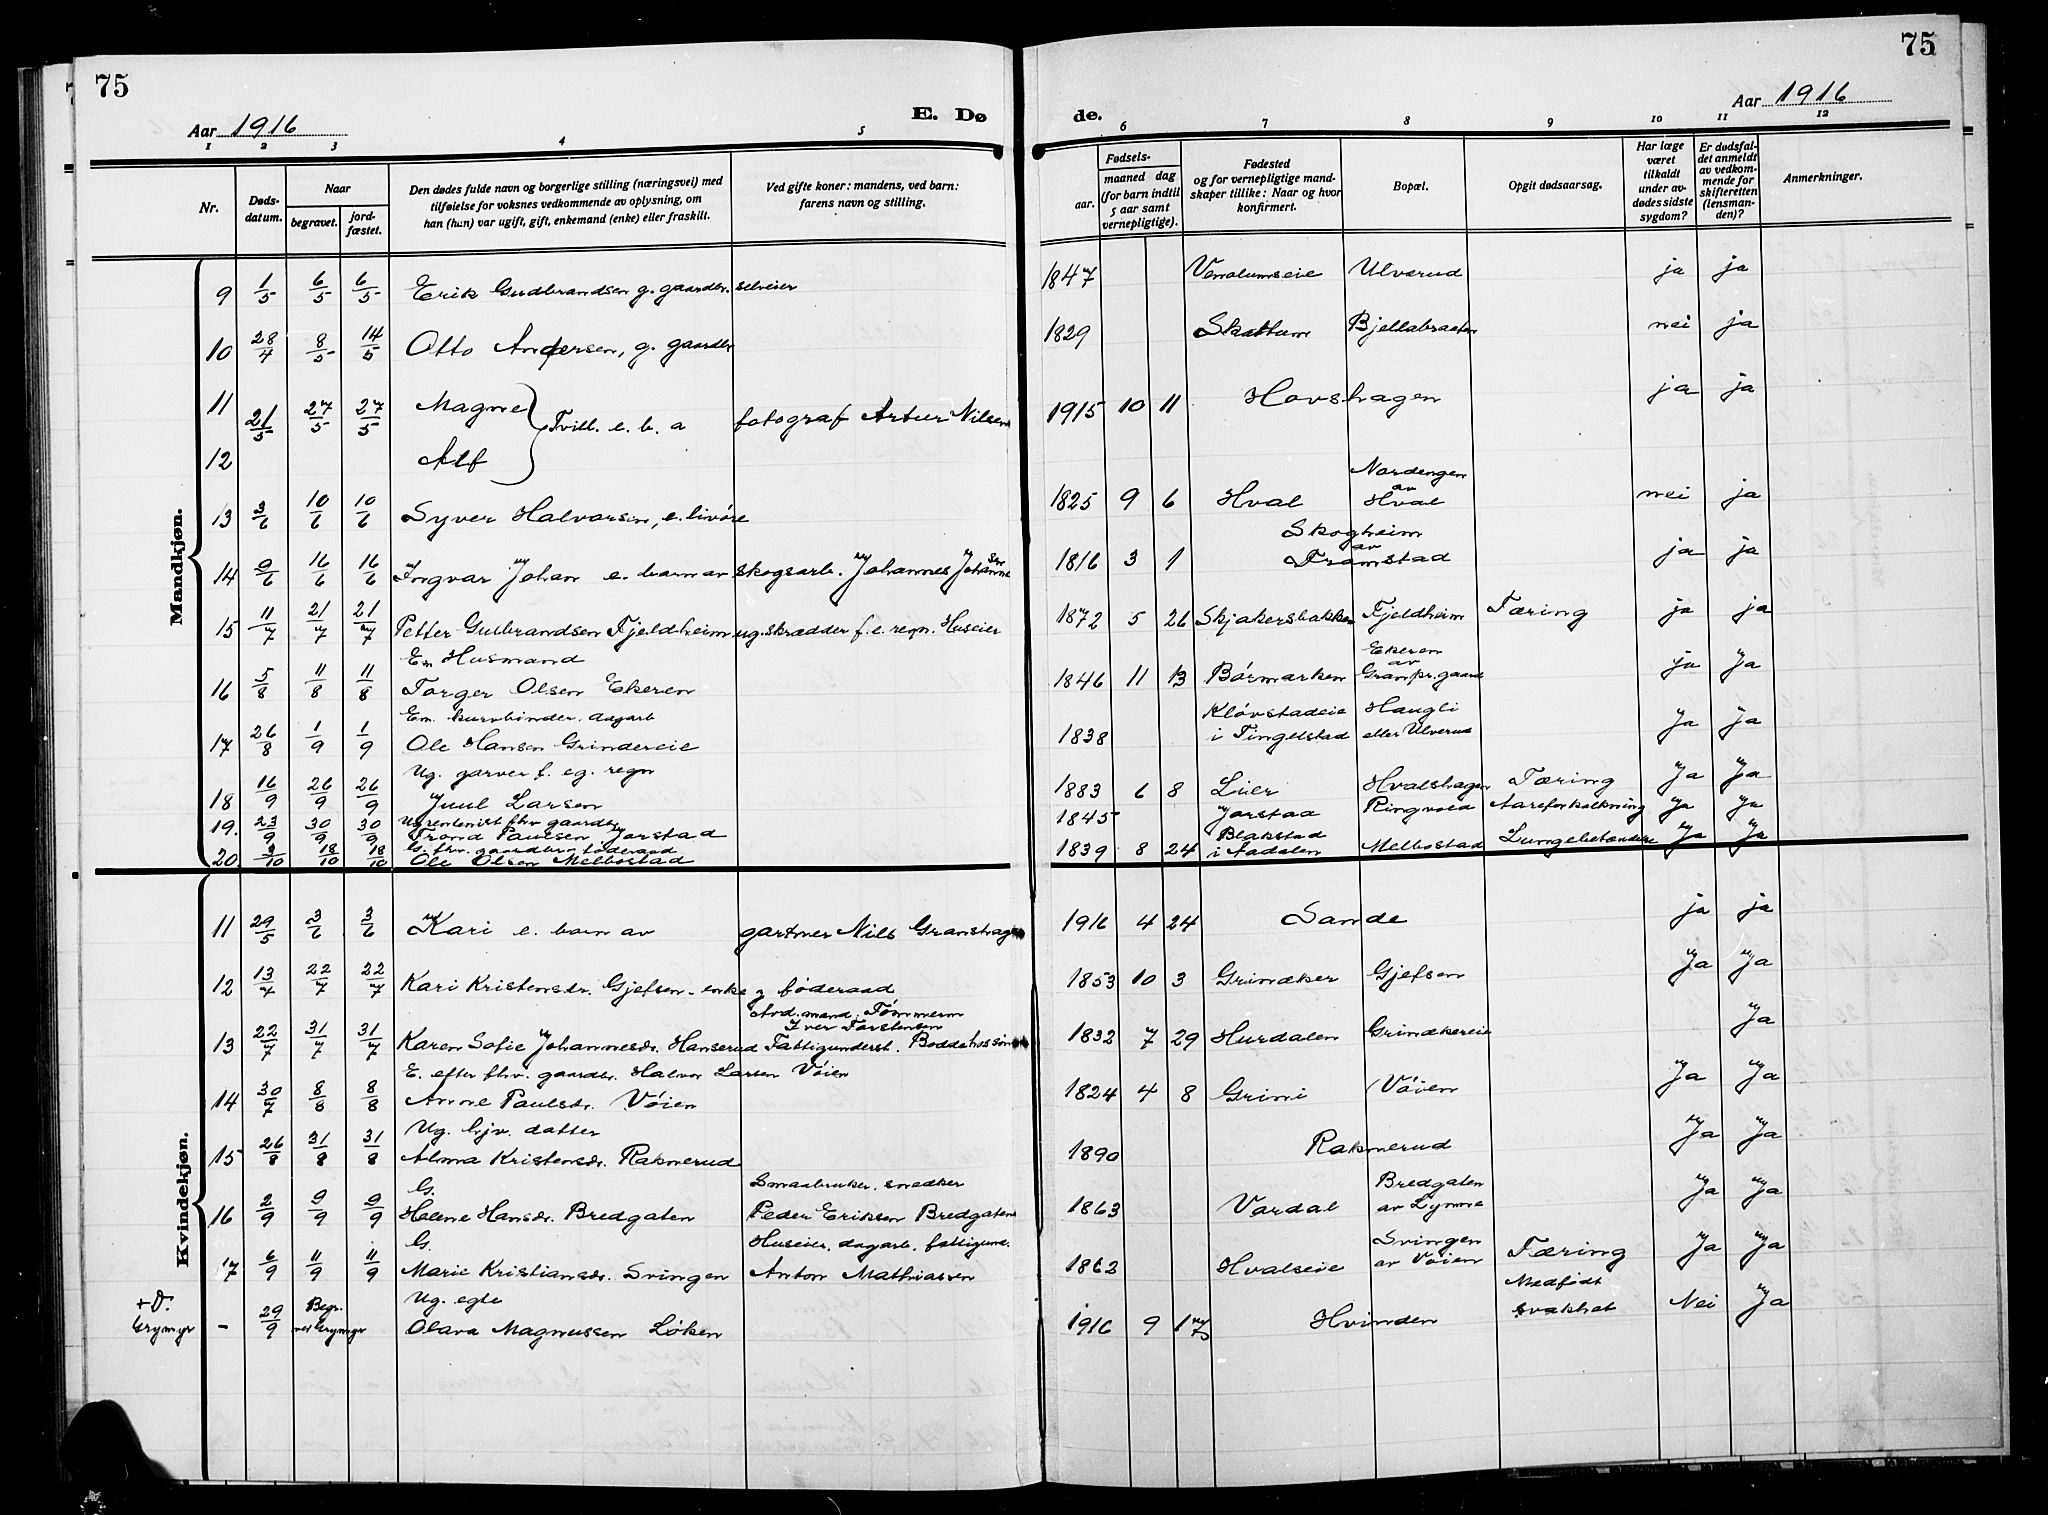 75
75
Aar 1916
E. Dø
de.
Aar 1916
1 2 3 4 5
6 7 8 9 10 11 12
Nr.
Døds-
datum.
Naar
begravet.
jord-
fæstet.
Den dødes fulde navn og borgerlige stilling (næringsvei) med
tilføielse for voksnes vedkommende av oplysning, om
han (hun) var ugift, gift, enkemand (enke) eller fraskilt.
Ved gifte koner: mandens, ved barn:
farens navn og stilling.
Fødsels-
aar.
maaned dag
(for barn indtil
5 aar samt
vernepligtige).
Fødested
og for vernepligtige mand-
skaper tillike: Naar og hvor
konfirmert.
Bopæl.
Opgit dødsaarsag.
Har læge
været
tilkaldt
under av-
dødes sidste
sygdom?
Er dødsfal-
det anmeldt
av vedkom-
mende for
skifteretten
(lensman-
den)?
Anmerkninger.
Mandkjøn.
9 1/5 6/5 6/5 Erik Gudbrandsen g. gaardbr. selveier 1847 Ulverud ja ja
10 28/4 8/5 14/5 Otto Andersen, g. gaardbr 1829 Skattum Bjellabraaten nei ja
11 Magne
21/5 27/5 27/5 Tvill. e. b. a fotograf Artur Nilsen 1915 10 11 Hovshagen ja ja
12 Alf
Nordengen
av
13 3/6 10/6 10/6 Syver Halvorsen, e. livøre 1825 9 6 Hval Hval nei ja
Skogheim
av
14 9/6 16/6 16/6 Ingvar Johan e. barn av skogsarb. Johannes Johanne sen 1816 3 1 Framstad ja ja
15 11/7 21/7 21/7 Petter Gulbrandsen Fjeldheim ug. skrædder f. e. regn. Huseier 1872 5 26 Skjakersbakken Fjeldheim Tæring ja ja
Em Husmand
Ekeren
av
16 5/8 11/8 11/8 Torger Olsen Ekeren 1846 11 13 Børmarken Gran pr. gaard ja Ja
Em. kurvbinder. dagarb
Kløvstadeie Haugli
17 26/8 1/9 1/9 Ole Hansen Grindereie 1838 i Tingelstad eller Ulverud Ja Ja
Ug. garver f. eg. regn
18 16/9 26/9 26/9 Juul Larsen 1883 6 8 Lier Hvalshagen Tæring Ja Ja
Ug rentenist fhv gaardbr
19. 23/9 30/9 30/9 Trond Paulsen Jorstad 1845 Jorstad Ringvold Aareforkalkning Ja Ja
G. fhv. gaardbr. føderaad
Blakstad
20 3/10 18/10 18/10 Ole Olsen Melbostad 1839 8 24 i Aadalen Melbostad Lungebetændelse Ja Ja
Kvindekjøn.
11 29/5 3/6 3/6 Kari e. barn av gartner Nils Granshagen 1916 4 24 Sande ja ja
12 13/7 22/7 22/7 Kari Kristensdr. Gjefsen - enke føderaad 1853 10 3 Grinaker Gjefsen Ja Ja
Avd. mand: Tømmerm
Iver Torstensen
13 22/7 31/7 31/7 Karen Sofie Johannesdr. Hanserud Fattigunderst. 1832 7 29 Hurdalen Grinakereie Ja
E. efter fhv. gaardbr. Halvor Larsen Vøien
14 30/7 8/8 8/8 Anne Paulsdr. Vøien 1824 4 8 Grini Vøien Ja Ja
Ug. Gjv. datter
15 26/8 31/8 31/8 Alma Kristensdr. Raknerud 1890 Raknerud Ja Ja
G. Smaabruker. snedker
Bredgaten
16 2/9 9/9 9/9 Helene Hansdr. Bredgaten Peder Eriksen Bredgaten 1863 Vardal av Lynne Ja Ja
G. Huseier, dagarb., fattigund.
Svingen
17 6/9 11/9 11/9 Marie Kristiansdr. Svingen Anton Mathiassen 1862 Hvalseie av Vøien Tæring Ja Ja
Ug. egte
Medfødt
+ D.
Grymyr - 29/9 Begr. ved Grymyr Olava Magnussen Løken 1916 9 17 Hvinden svakhet Nei Ja